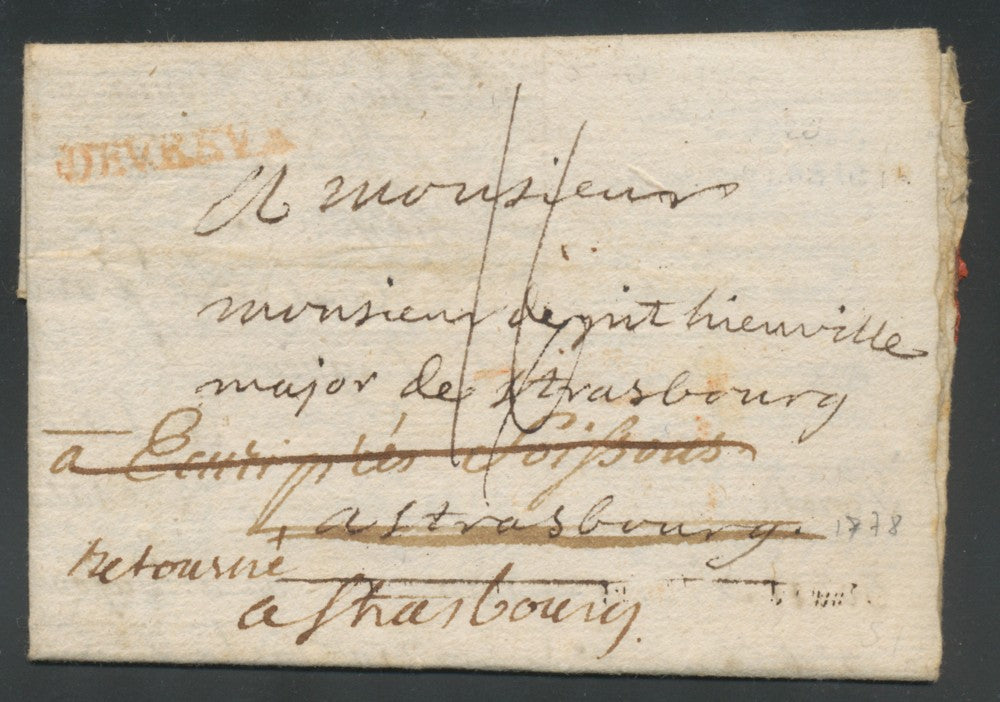 DEVREVX
A monsieur
monsieur de
major de strasbourg
a Ecuri près Soissons
a strasbourg.
1778
Retourné
a strasbourg.